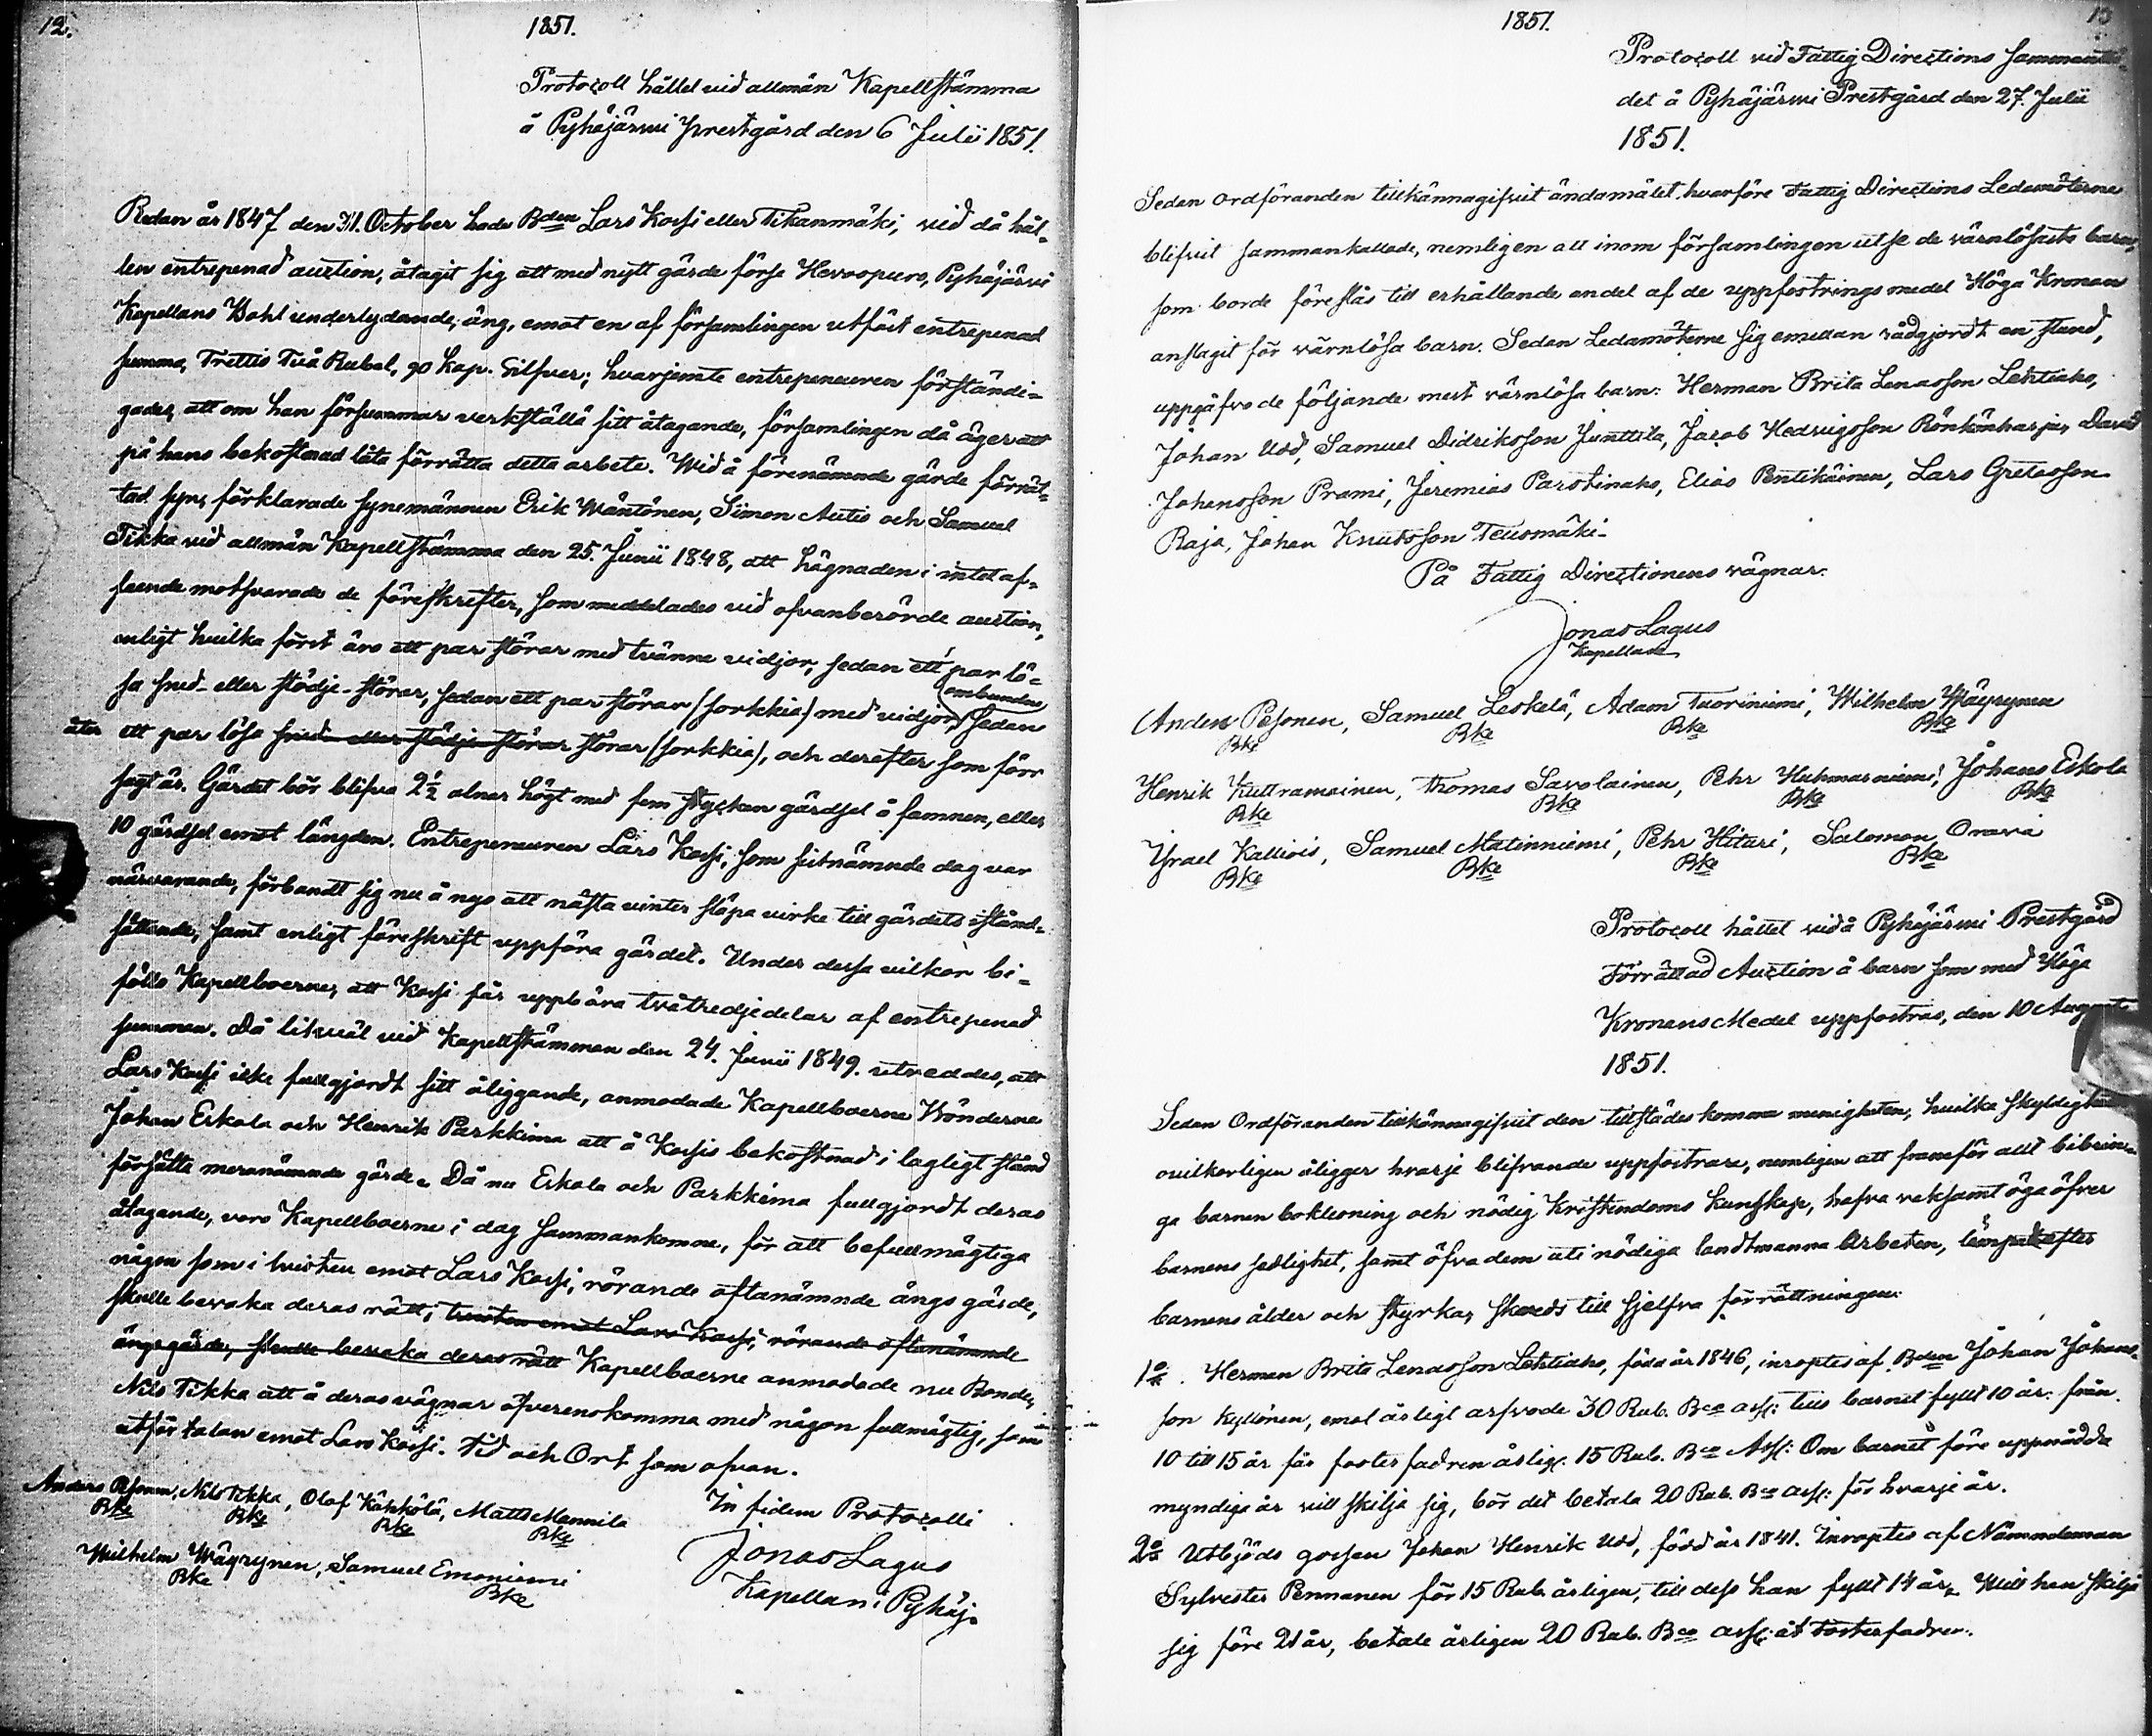 12.
1851.
Protocoll hållet vid allmän Kapellstämma
å Pyhäjärvi prestgård den 6 Julii 1851.
Redan år 1847 den 31. October hade Bden Lars Kossi eller Tikanmäki, vid då hål-
len entrepenad auction, åtagit sig att med nytt gärde förse Hervopuro, Pyhäjärvi
Kapellans Bohl underlydande, äng, emot en af församlingen utfäst entrepenad
summa, Trettio Två Rubel, 90 Kop. Silfver; hvarjemte entrepeneuren förständi-
gades, att om han försummar verkställä sitt åtagande, församlingen då äger att
på hans bekostnad låta förrätta detta arbete. Wid å förenämnde gärde förrät-
tad syn, förklarade synemännen Erik Mäntönen, Simon Autio och Samuel
Tikka vid allmän Kapellstämma den 25. Junii 1848, att hägnaden i intet af-
seende motsvarade de föreskrifter, som meddelades vid ofvanberörde auction,
enligt hvilka först äro ett par störar med tvänne vidjor, sedan ett par lö-
sa sned- eller stödje-störar, sedan ett par störar (sorkkia) med vidjor, (ombunden) sedan
åter ett par lösa sned- eller stödje-störar störar (sorkkia), och derefter som förr
sagt är. Gärdet bör blifva 2½ alnar högt med fem stycken gärdsel å famnen, eller
10 gärdsel emot längden. Entrepeneuren Lars Kossi, som sistnämnde dag var
närvarande, förbandt sig nu å nyo att nästa vinter släpa virke till gärdets istånd-
sättande, samt enligt föreskrift uppföra gärdet. Under dessa vilkor bi-
föllo Kapellboerne, att Kossi får uppbära tvåtredjedelar af entrepenad
summan. Då likväl vid Kapellstämman den 24. Junii 1849. utreddes, att
Lars Kossi icke fullgjordt sitt åliggande, anmodade Kapellboerne Bönderne
Johan Eskola och Henrik Parkkima att å Kossis bekostnad i lagligt stånd
försätta meranämnde gärde. Då nu Eskola och Parkkima fullgjordt deras
åtagande, voro Kapellboerne i dag sammankomne, för att befullmägtiga
någon som i tvisten emot Lars Kossi, rörande oftanämnde ängs gärde,
skulle bevaka deras rätt; tvisten emot Lars Kossi, rörande oftanämnde
ängsgärde, skulle bevaka deras rätt Kapellboerne anmodade nu Bonden
Nils Tikka att å deras vägnar öfverenskomma med någon fullmägtig, som
utför talan emot Lars Kossi. Tid och Ort som ofvan.
Anders Pesonen, Nils Tikka, Olof Kähkölä, Matts Mannila
Bke Bke Bke Bke
In fidem Protocolli
Wilhelm Wäyrynen, Samuel Emoniemi
Bke Bke
Jonas Lagus
Kapellan i Pyhäj.
1851.
13
Protocoll vid Fattig Directions samman
det å Pyhäjärvi Prestgård den 27. Julii
1851.
Sedan ordföranden tillkännagifvit ändamålet, hvarföre Fattig Directions Ledamöterne
blifvit sammankallade, nemligen att inom församlingen utse de värnlösaste barn,
som borde föreslås till erhållande andel af de uppfostrings medel Höga Kronan
anslagit för värnlösa barn. Sedan Ledamöterne sig emellan rådgjordt en stund,
uppgåfvo de följande mest värnlösa barn: Herman Brita Lenasson Lehtiaho,
Johan Udd, Samuel Didriksson Junttila, Jacob Hedvigsson Rönkönharju, David
Johansson Prami, Jeremias Parstinaho, Elias Pentikäinen, Lars Gretasson
Raja, Johan Knutsson Teusmäki-
På Fattig Directionens vägnar:
Jonas Lagus
Kapellan
Anders Pesonen, Samuel Leskelä, Adam Tuoriniemi, Wilhelm Wäyrynen
Bke Bke Bke Bke
Henrik Kuttramainen, Thomas Savolainen, Pehr Huhmarniemi, Johans Eskola
Bke Bke Bke Bke
Israel Kalliois, Samuel Matinniemi, Pehr Hitari, Salomon Orava
Bke Bke Bke Bke
Protocoll hållet vid å Pyhäjärvi Prestgård
Förrättad Auction å barn som med Höga
Kronans Medel uppfostras, den 10 August
1851.
Sedan Ordföranden tillkännagifvit den tillstädes komma menigheten, hvilka skyldigheter
ovilkorligen åligger hvarje blifvande uppfostrare, nemligen att framför allt bibrin-
ga barnen bokläsning och nödig Kristendoms Kunskap, hafva vaksamt öga öfver
barnens sedlighet, samt öfva dem uti nödiga landtmanna Arbeten, lämpadt efter
barnens ålder och styrka, skreds till sjelfva förrättningen:
1o. Herman Brita Lenasson Lehtiaho, född år 1846, inroptes af Bden Johan Johans-
son Kyllönen, emot årligt arfvode 30 Rub. Bco ass: tills barnet fyllt 10 år: från
10 till 15 år får fosterfadren årlig: 15 Rub. Bco Ass: Om barnet före uppnådda
myndige år vill skilja sig, bör det betala 20 Rub. Bco ass: för hvarje år.
2o Utbjöds gossen Johan Henrik Udd, född år 1841. Inroptes af Nämndeman
Sylvester Pennanen för 15 Rub. årligen, till dess han fyllt 14 år. Will han skilja
sig före 21 år, betale årligen 20 Rub. Bco ass: åt Fosterfadren.